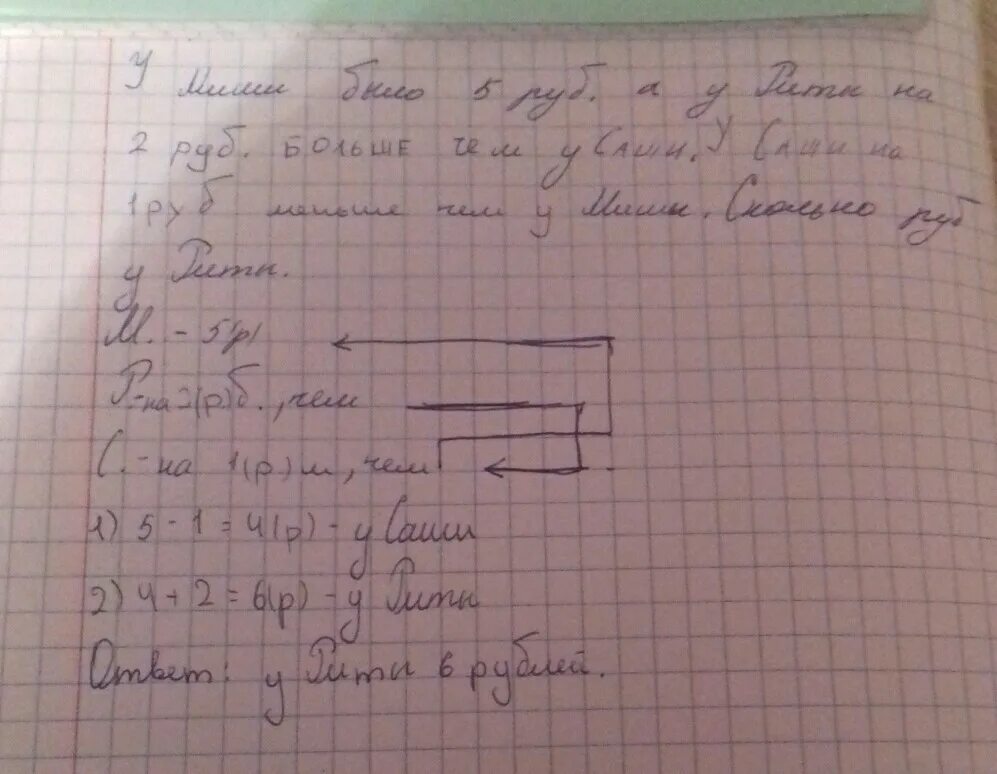 У Миши было 5 руб. а у Риты на
2 руб. БОЛЬШЕ чем у Саши. У Саши на
1 руб меньше чем у Миши. Сколько руб
у Риты.
М. - 5(р)
Р.-на 2(р)б., чем
С.-на 1(р)м, чем
1) 5 - 1 = 4(р) - у Саши
2) 4 + 2 = 6(р) - у Риты
Ответ: у Риты 6 рублей.